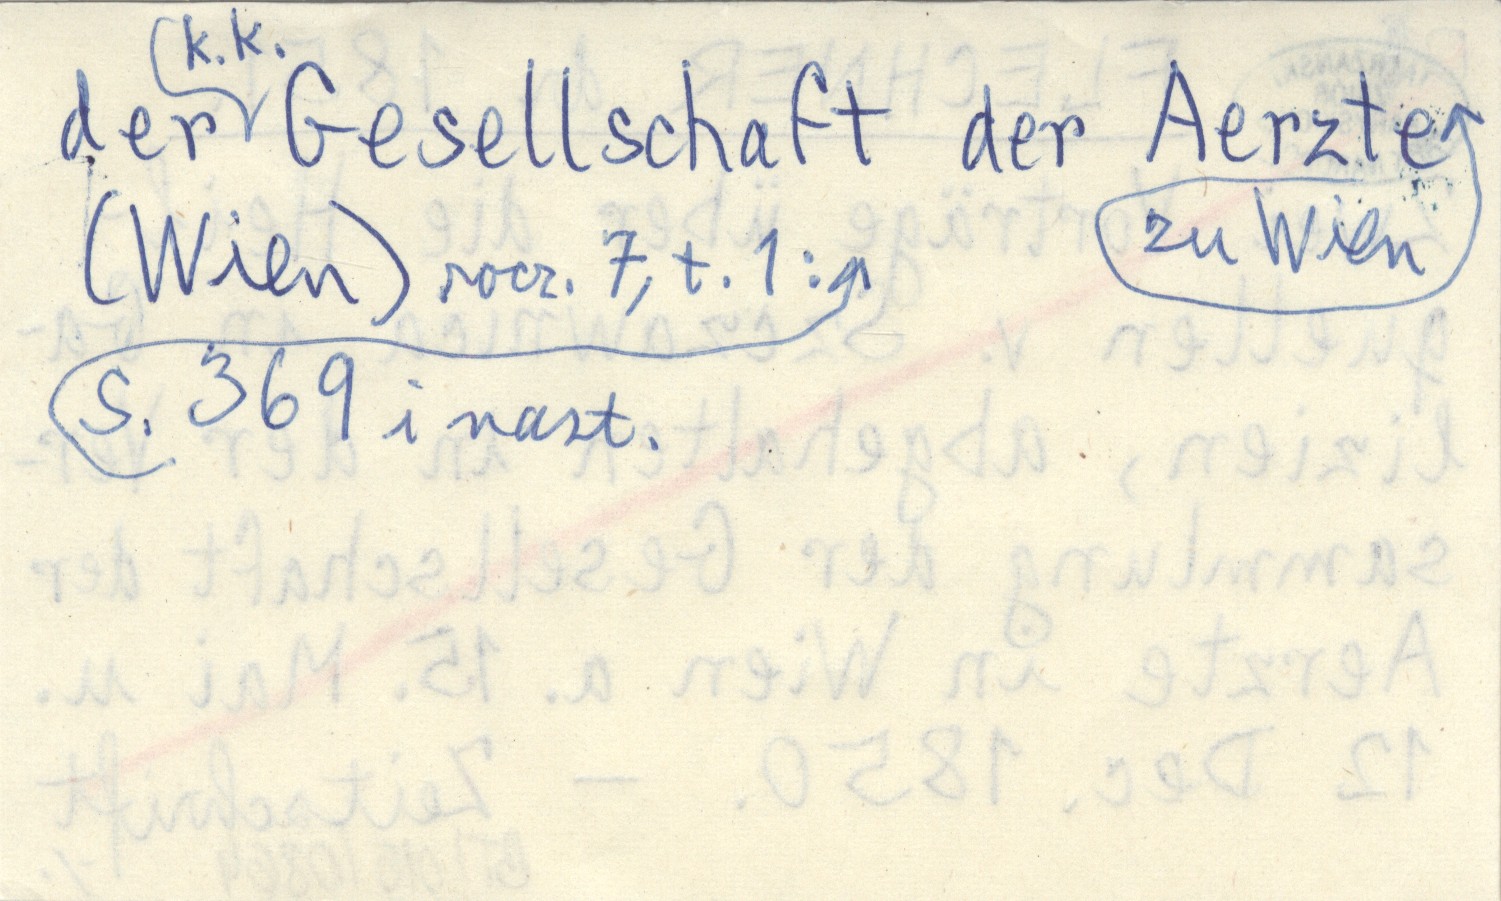 k.k.
der Gesellschaft der Aerzte
(Wien) rocz. 7, t. 1: zu Wien
S. 369 i nast.